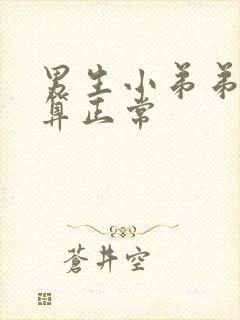 男生小弟弟
算正常
蒼井空